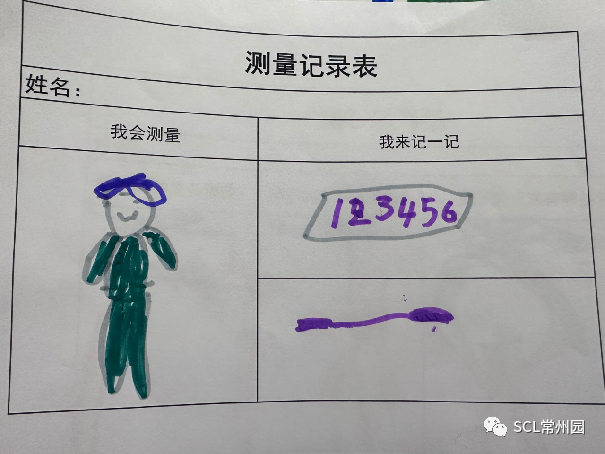 测量记录表
姓名：
我会测量
我来记一记
123456
SCL常州园